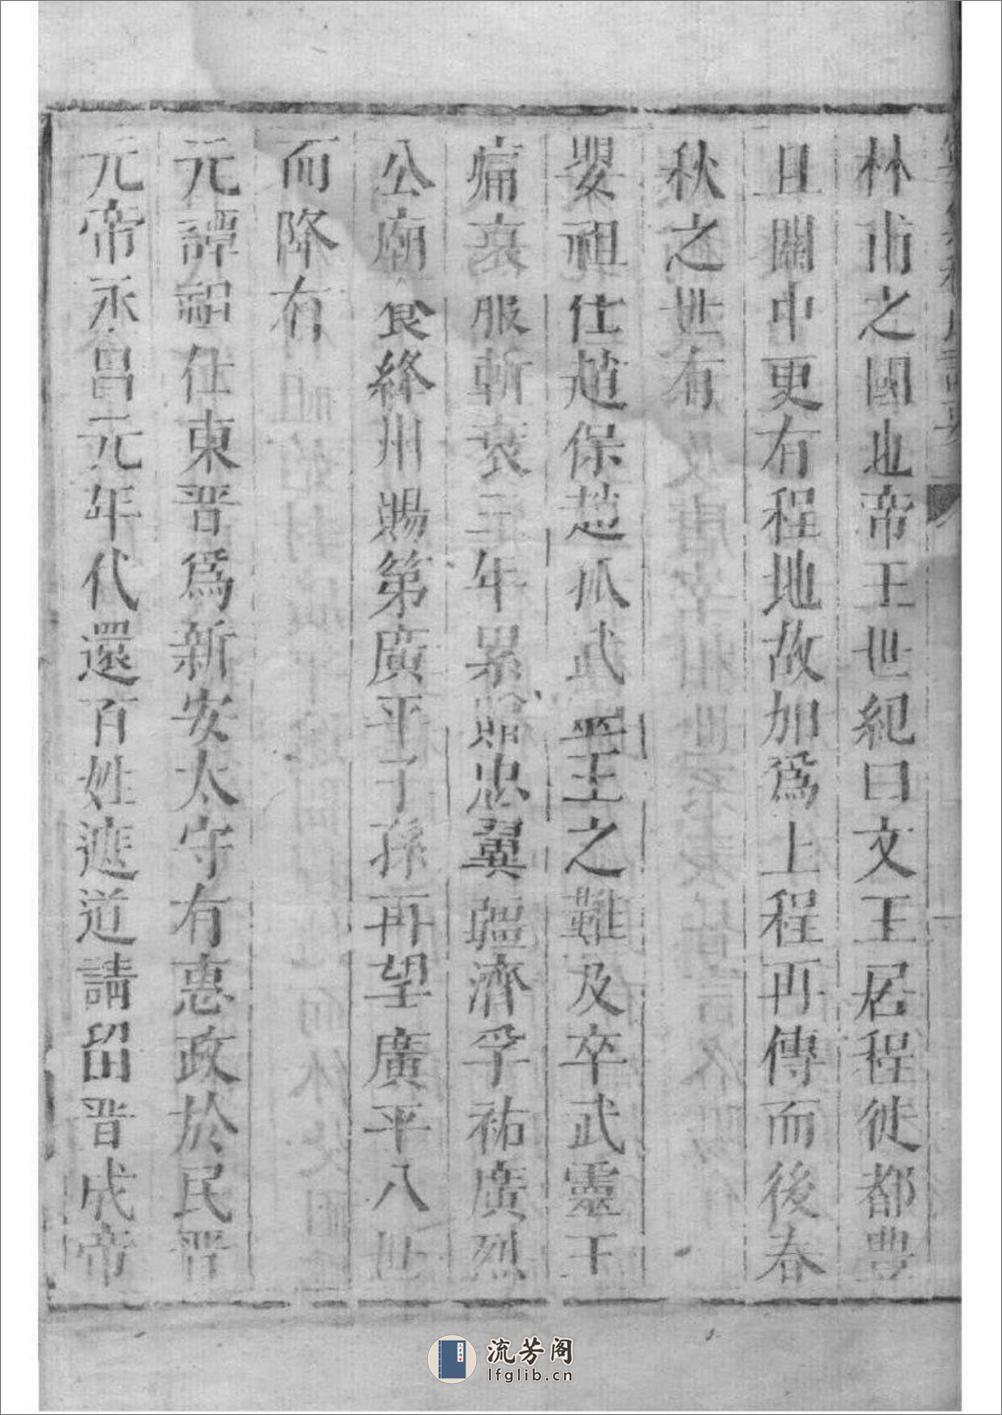 林甫之國也帝王世紀曰文王居程徙都豊
且關中更有程地故加爲上程再傳而後春
秋之世有
嬰祖仕趙保趙孤武平王之難及卒武靈王
痛哀服斬衰三年累諡忠翼疆濟孚祐廣烈
公廟食絳州賜第廣平子孫再望廣平八世
而降有
元譚祖仕東晋爲新安太守有惠政於民晋
元帝永昌元年代還百姓遮道請留晋成帝
流芳阁
lfglib.cn